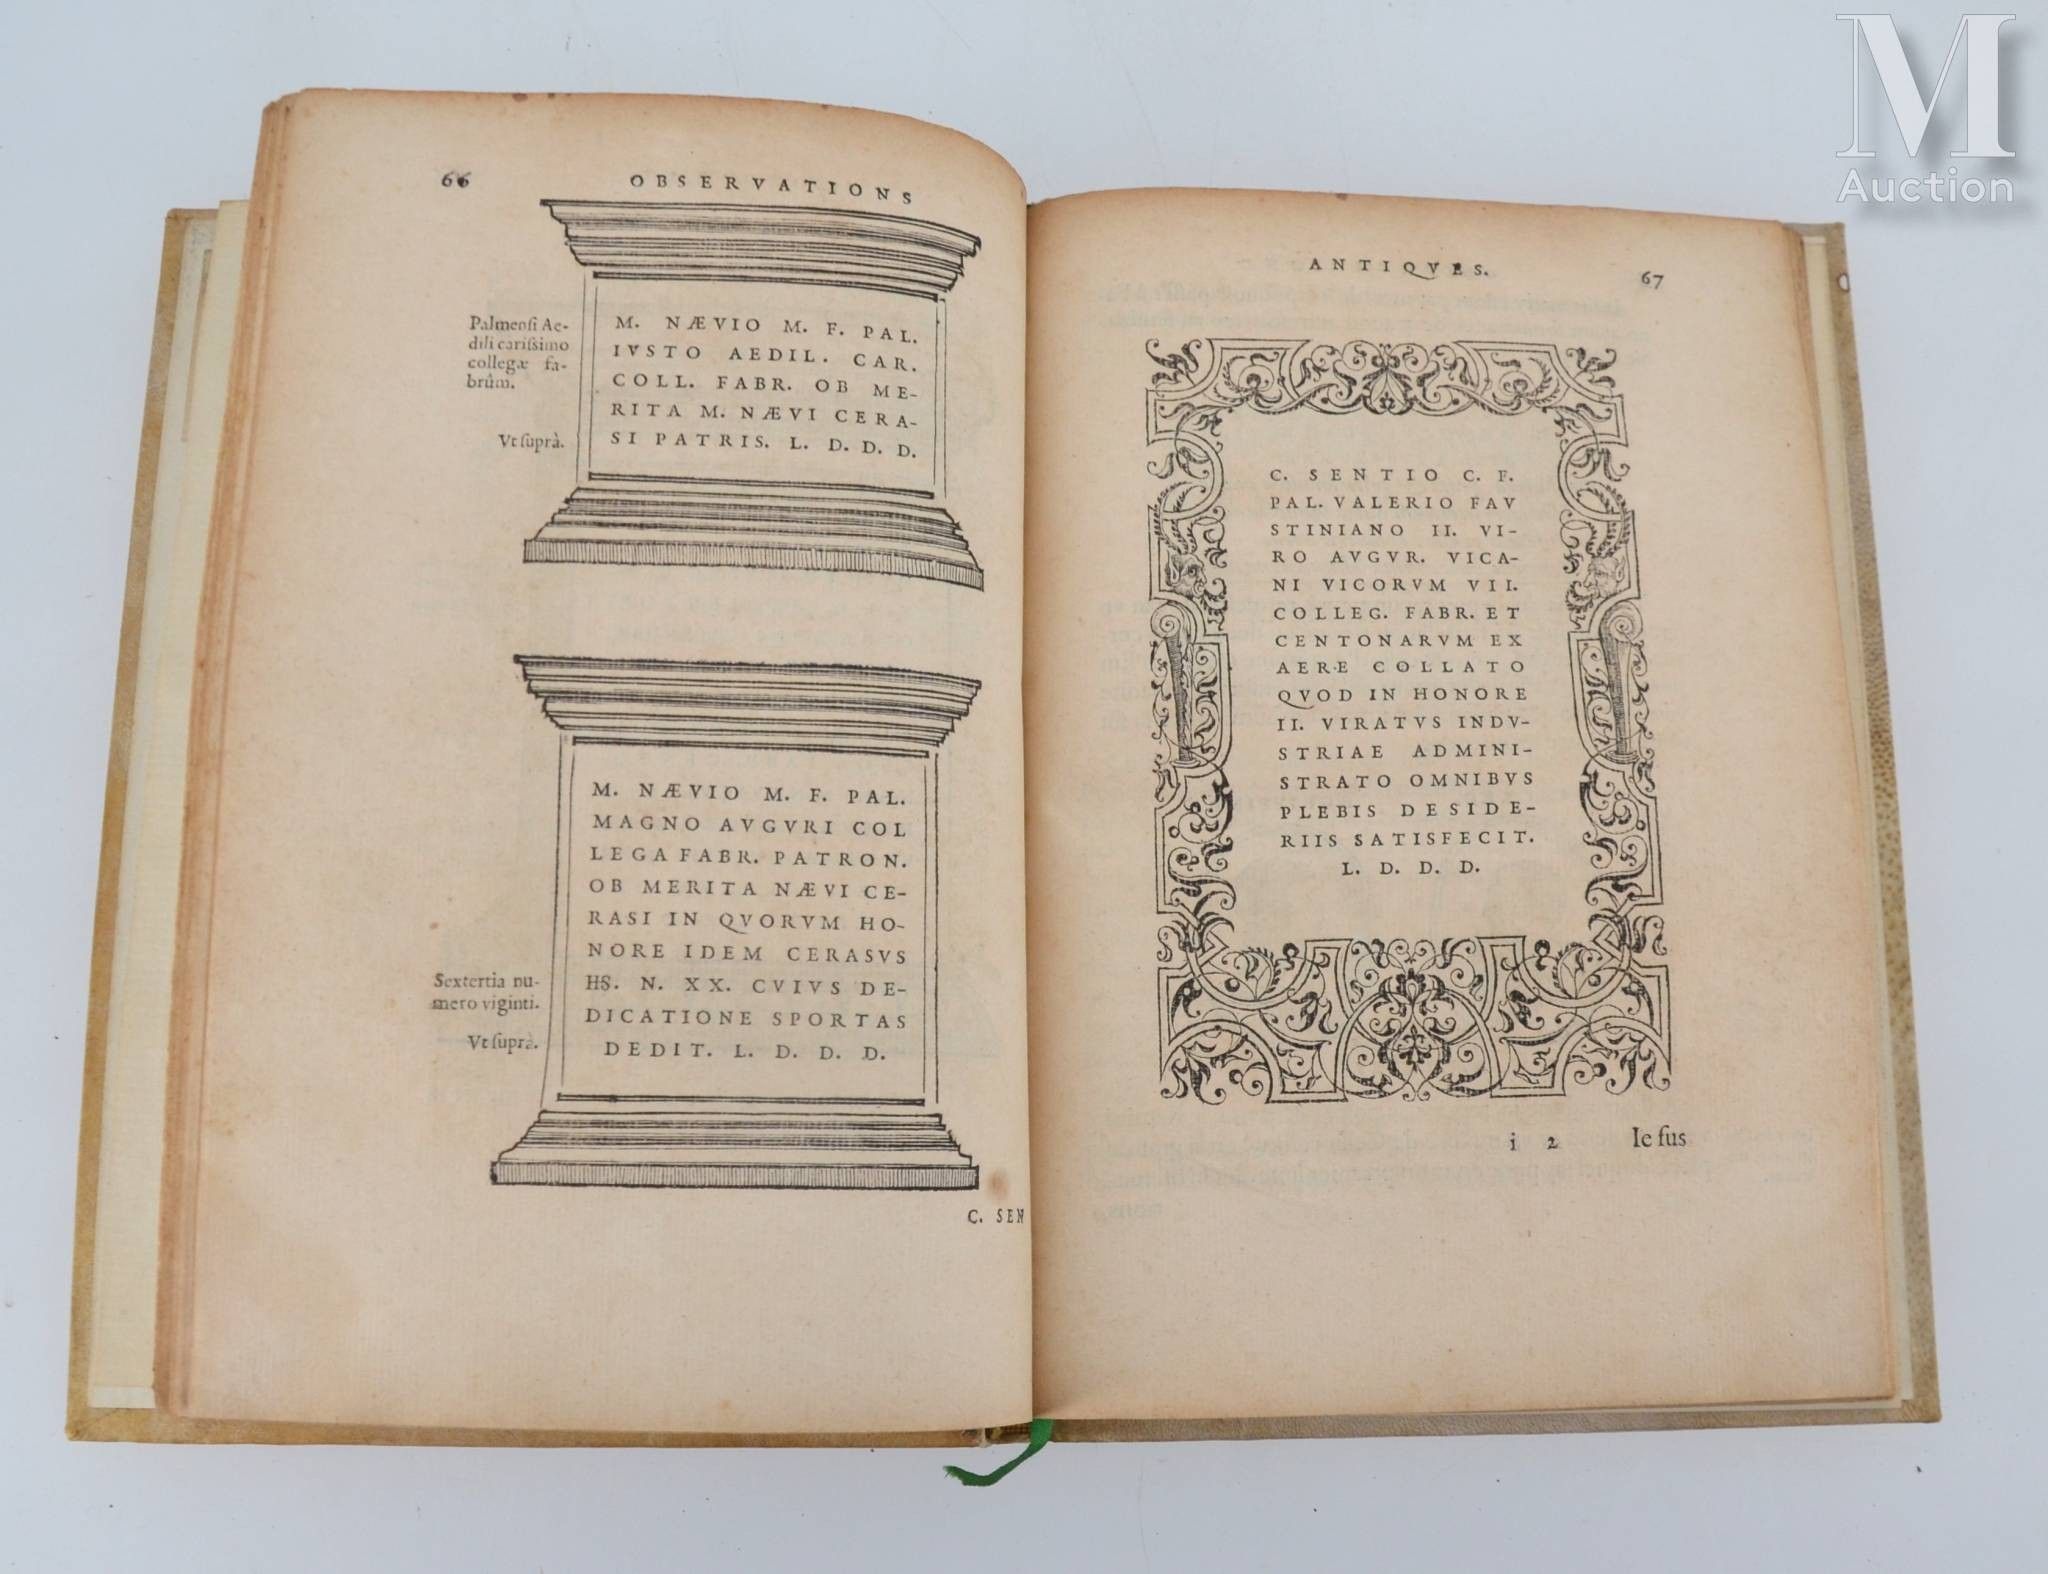 66
OBSERVATIONS
Palmensi Ae-
dili carissimo
collegæ fa-
brûm.
Vt suprà.
M. NÆVIO M. F. PAL.
IVSTO AEDIL. CAR.
COLL. FABR. OB ME-
RITA M. NÆVI CERA-
SI PATRIS. L. D. D. D.
M. NÆVIO M. F. PAL.
MAGNO AVGVRI COL
LEGA FABR. PATRON.
OB MERITA NÆVI CE-
RASI IN QVORVM HO-
NORE IDEM CERASVS
HS. N. XX. CVIVS DE-
DICATIONE SPORTAS
DEDIT. L. D. D. D.
Sextertia nu-
mero viginti.
Vt suprà.
C. SEN
ANTIQVES.
67
C. SENTIO C. F.
PAL. VALERIO FAV
STINIANO II. VI-
RO AVGVR. VICA-
NI VICORVM VII.
COLLEG. FABR. ET
CENTONARVM EX
AERE COLLATO
QVOD IN HONORE
II. VIRATVS INDV-
STRIAE ADMINI-
STRATO OMNIBVS
PLEBIS DESIDE-
RIIS SATISFECIT.
L. D. D. D.
i 2
Ie fus
M
Auction